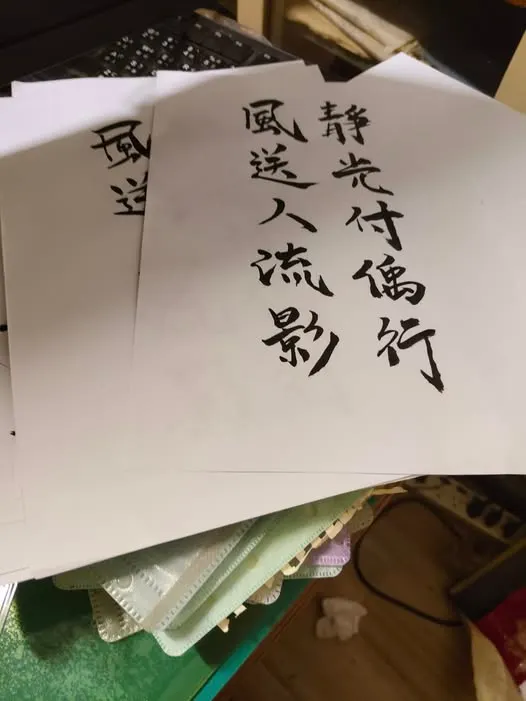 靜光付偊行
風送人流影
風送